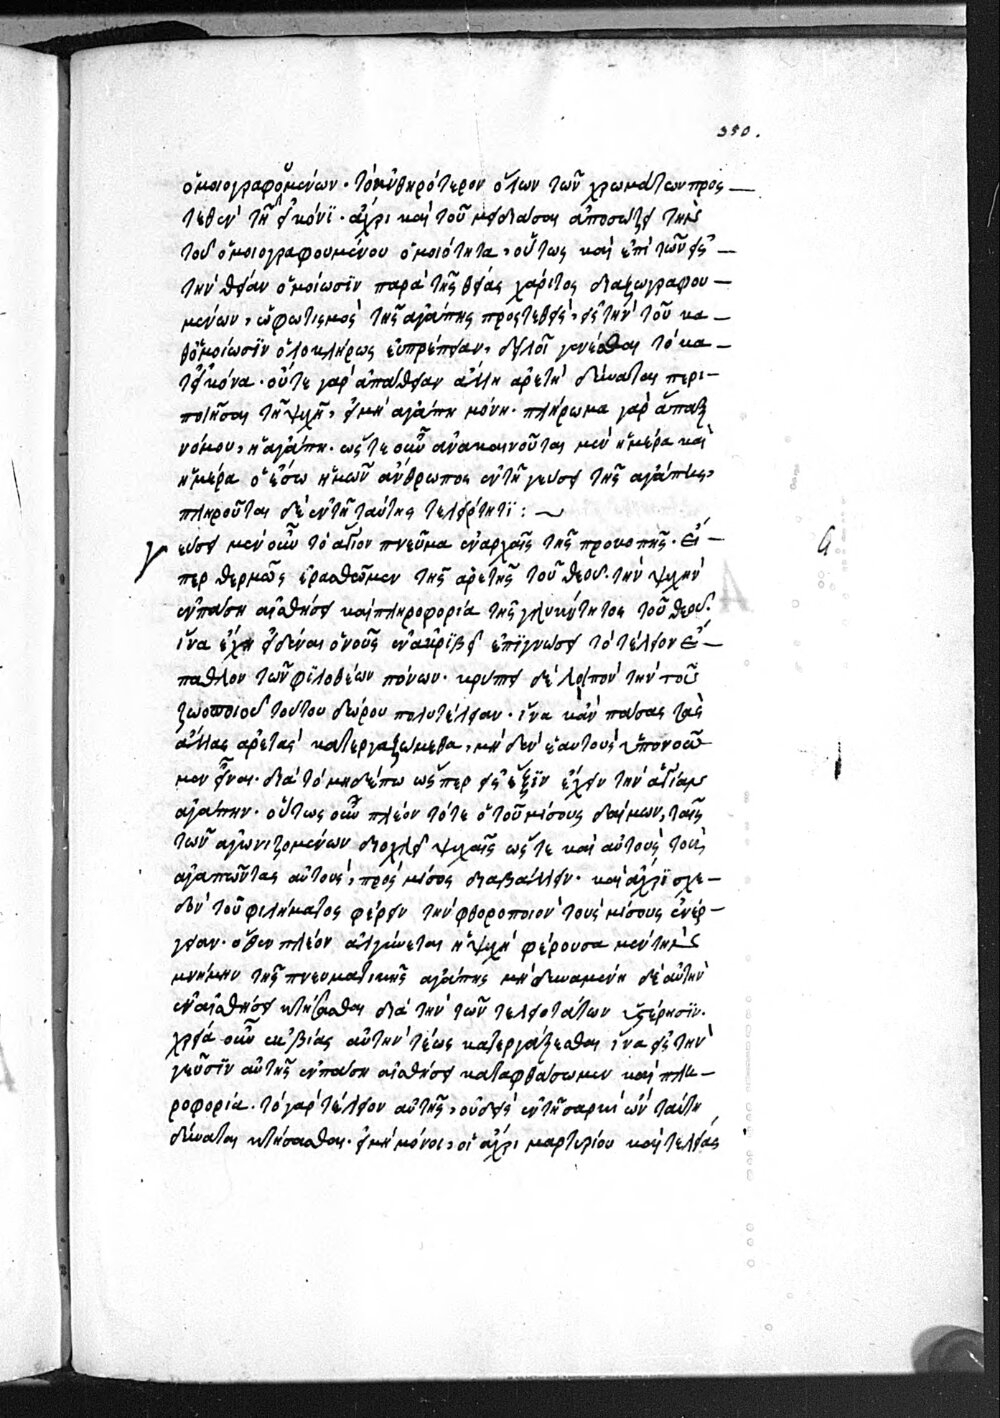 350.
ὁμοιογραφουμένων· τὸ ἀνθηρότερον ὅλων τῶν χρωμάτων προς
τεθὲν τῇ εἰκόνϊ· ἄχρι καὶ τοῦ μειδιᾶσαι ἀποσώζει τὴν
τοῦ ὁμοιογραφουμένου ὁμοιότητα, οὕτως καὶ ἐπὶ τῶν εἰς
τὴν θείαν ὁμοίωσϊν παρὰ τῆς θείας χάριτος διαζωγραφου
μένων, ὁ φωτισμὸς τῆς ἀγάπης προςτεθεὶς, εἰς τὴν τοῦ κα
θομοίωσϊν ὁλοκλήρως εὐπρέπειαν, δηλοῖ γενέσθαι τὸ κα
τεικόνα· οὔτε γὰρ ἀπάθειαν ἄλλη ἀρετὴ δύναται περι
ποιῆσαι τῇ ψυχῇ, εἰμὴ ἀγάπη μόνη· πλήρωμα γὰρ ἅπαξ
νόμου, ἡ ἀγάπη· ὥςτε οὖν ἀνακαινοῦται μὲν ἡμέρα καὶ
ἡμέρα ὁ ἔσω ἡμῶν ἄνθρωπος ἐν τῇ γεύσει τῆς ἀγάπης,
πληροῦται δὲ ἐν τῇ ταύτης τελειότητϊ:
γεύει μὲν οὖν τὸ ἅγιον πνεῦμα ἐν ἀρχαῖς τῆς προκοπῆς· εἴ
περ θερμῶς ἐρασθῶμεν τῆς ἀρετῆς τοῦ θεοῦ· τὴν ψυχὴν
ἐν πάσῃ αἰσθήσει καὶ πληροφορία τῆς γλυκύτητος τοῦ θεοῦ·
ἵνα ἔχῃ εἰδέναι ὁ νοῦς ἐν ἀκριβεῖ ἐπϊγνώσει τὸ τέλειον ἔ
παθλον τῶν φϊλοθέων πόνων· κρύπτει δὲ λοιπὸν τὴν τοῦ
ζωοποιοῦ τούτου δώρου πολυτέλειαν· ἵνα κἂν πάσας τὰς
ἄλλας ἀρετὰς κατεργαζώμεθα, μηδὲν ἑαυτοὺς ὑπονοῶ
μεν εἶναι· διὰ τὸ μηδέπω ὥςπερ εἰς ἕξϊν ἔχειν τὴν ἁγίαν
ἀγάπην· οὕτως οὖν πλέον τότε ὁ τοῦ μίσους δαίμων, ταῖς
τῶν ἀγωνιζομένων διοχλεῖ ψυχαῖς ὥςτε καὶ αὐτοὺς τοὺς
ἀγαπῶντας αὐτοὺς, πρὸς μῖσος διαβάλλειν· καὶ ἄχρϊ σχε
δὸν τοῦ φιλήματος φέρειν τὴν φθοροποιὸν τοῦ μίσους ἐνέρ
γειαν· ὅθεν πλέον ἀλγύνεται ἡ ψυχὴ φέρουσα μὲν τὴν
μνήμην τῆς πνευματικῆς ἀγάπης μὴ δυναμένη δὲ αὐτὴν
ἐν αἰσθήσει κτήσασθαι διὰ τὴν τῶν τελειοτάτων ὑστέρησϊν·
χρεία οὖν ἐκ βίας αὐτὴν τέως κατεργάζεσθαι ἵνα εἰς τὴν
γεῦσϊν αὐτῆς ἐν πάσῃ αἰσθήσει καταφθάσωμεν καὶ πλη
ροφορία· τὸ γὰρ τέλειον αὐτῆς, οὐδεὶς ἐν τῇ σαρκὶ ὢν ταύτῃ
δύναται κτήσασθαι· εἰμὴ μόνοι, οἱ ἄχρι μαρτυρίου καὶ τελείας